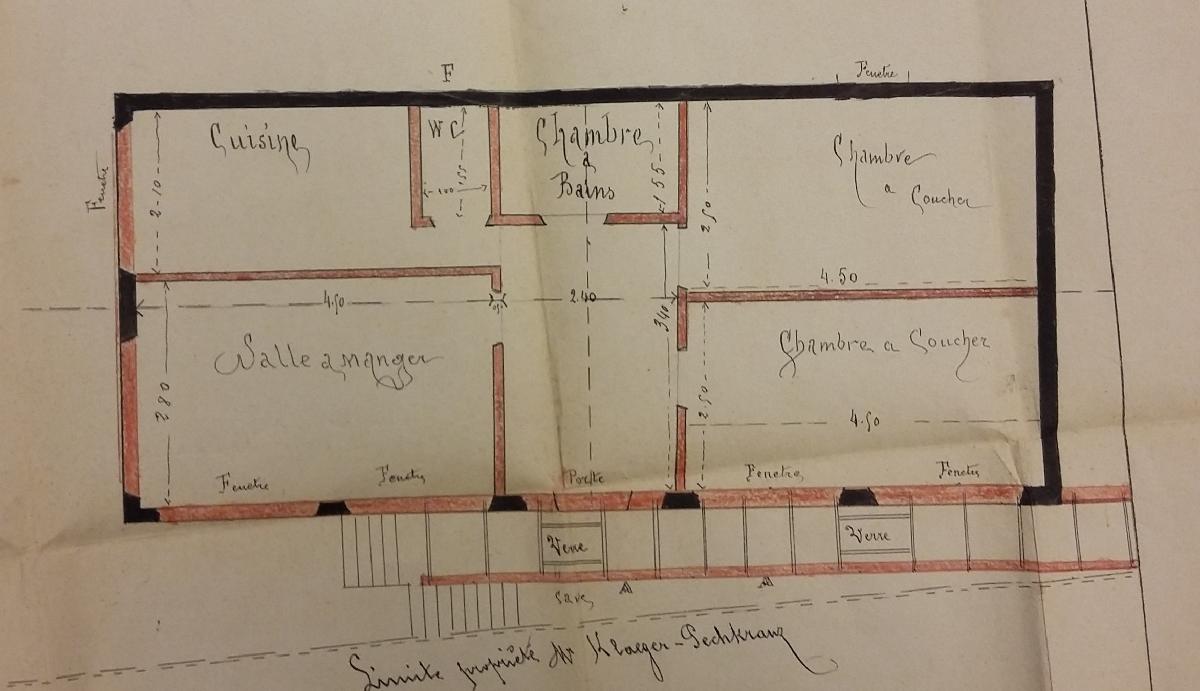 F
Fenetre
Cuisine
W C
Chambre
a
Bains
Chambre
a Coucher
Fenetre
2.10
1.55
1.00
1.55
2.50
4.50
4.50
2.40
3.40
Salle a manger
Chambre a Coucher
2.80
2.50
4.50
Fenetre
Fenetre
Porte
Fenetre
Fenetre
Verre
Verre
Cave
Limite propriété Mr Kraeger-Pechkranz